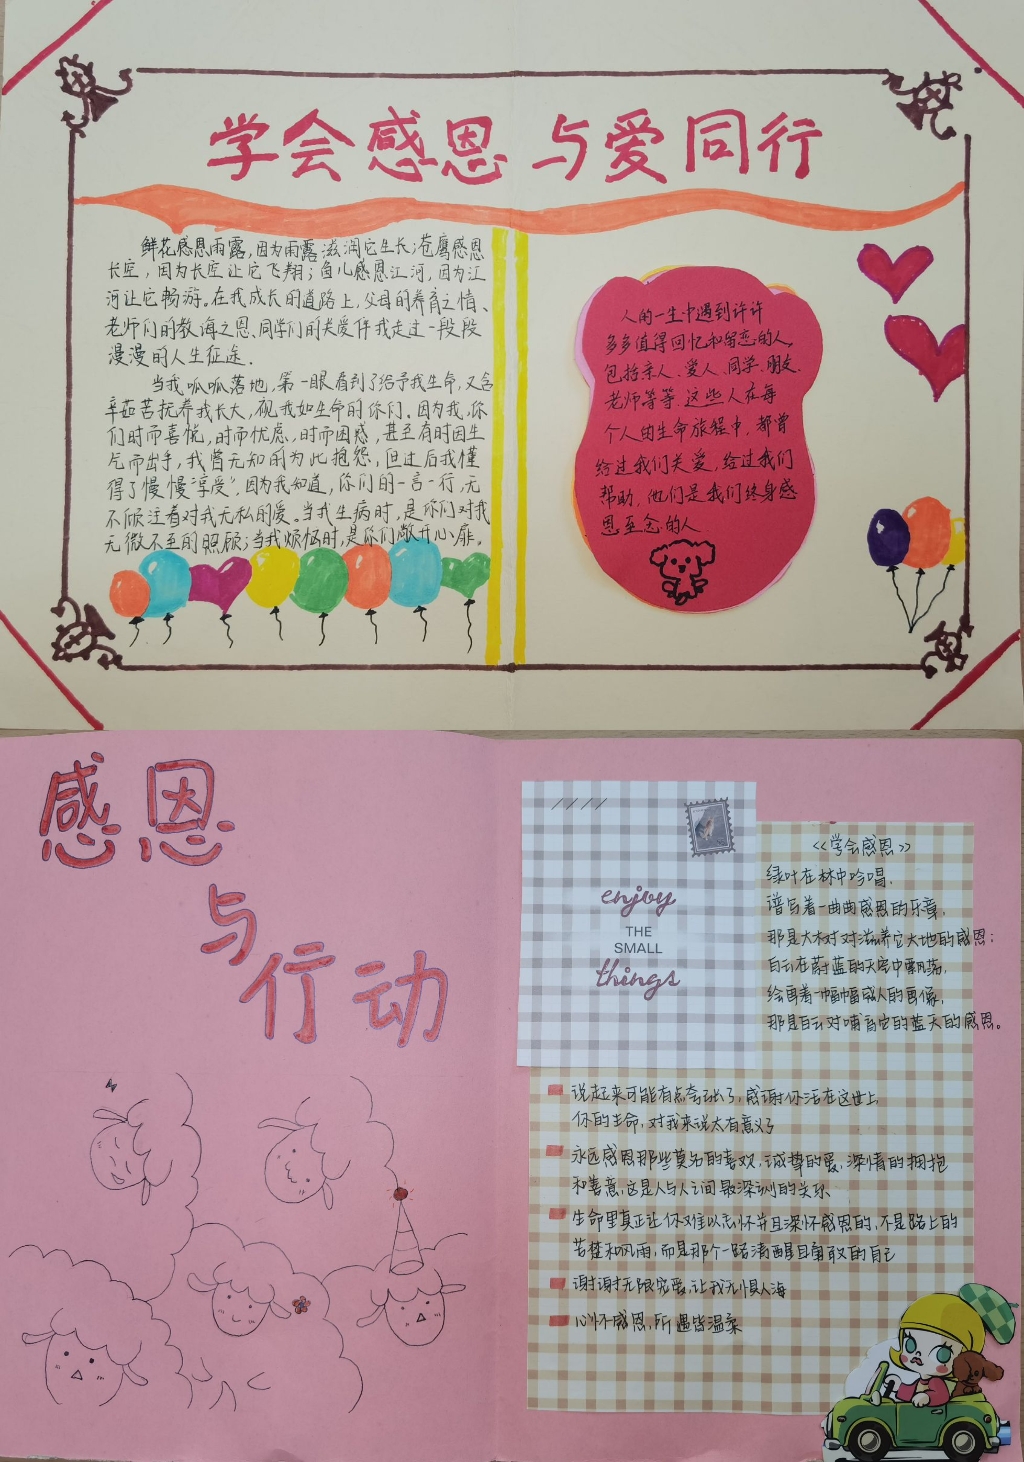 学会感恩 与爱同行
鲜花感恩雨露,因为雨露滋润它生长;苍鹰感恩
长空,因为长空让它飞翔;鱼儿感恩江河,因为江
河让它畅游。在我成长的道路上,父母的养育之情、
老师们的教诲之恩、同学们的关爱伴我走过一段段
漫漫的人生征途.
当我呱呱落地,第一眼看到了给予我生命,又含
辛茹苦抚养我长大,视我如生命的你们。因为我,你
们时而喜悦,时而忧虑,时而困惑,甚至有时因生
气而出手,我曾无知的为此抱怨,但过后我懂
得了慢慢"享受",因为我知道,你们的一言一行,无
不倾注着对我无私的爱。当我生病时,是你们对我
无微不至的照顾;当我烦恼时,是你们敞开心扉。
人的一生中遇到许许
多多值得回忆和留恋的人,
包括亲人、爱人、同学、朋友、
老师等等.这些人在每
个人的生命旅程中,都曾
给过我们关爱,给过我们
帮助,他们是我们终身感
恩至念的人
感恩
与
行动
enjoy
THE
SMALL
things
《学会感恩》
绿叶在林中吟唱,
谱写着一曲曲感恩的乐章,
那是大树对滋养它大地的感恩;
白云在蔚蓝的天空中飘荡,
绘画着一幅幅感人的画像,
那是白云对哺育它的蓝天的感恩。
说起来可能有点夸张了,感谢你活在这世上
你的生命,对我来说太有意义了
永远感恩那些莫名的喜欢,诚挚的爱,深情的拥抱
和善意,这是人与人之间最深刻的关系
生命里真正让你难以忘怀并且深怀感恩的,不是路上的
苦楚和风雨,而是那个一路清醒且勇敢的自己
谢谢无限宠爱,让我无惧人海
心怀感恩,所遇皆温柔